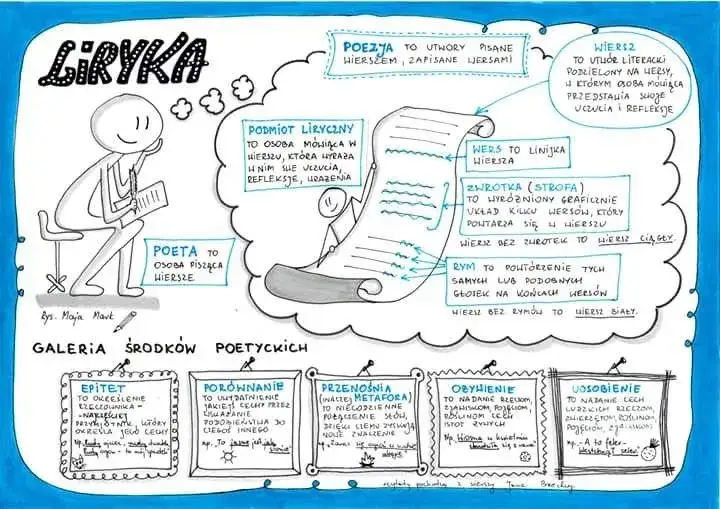 LIRYKA
POEZJA TO UTWORY PISANE
WIERSZEM, ZAPISANE WERSAMI
WIERSZ
TO UTWÓR LITERACKI
PODZIELONY NA WERSY,
W KTÓRYM OSOBA MÓWIĄCA
PRZEDSTAWIA SWOJE
UCZUCIA I REFLEKSJE
PODMIOT LIRYCZNY
TO OSOBA MÓWIĄCA W
WIERSZU, KTÓRA WYRAŻA
W NIM SWE UCZUCIA,
REFLEKSJE, WRAŻENIA
WERS TO LINIJKA
WIERSZA
ZWROTKA (STROFA)
TO WYRÓŻNIONY GRAFICZNIE
UKŁAD KILKU WERSÓW, KTÓRY
POWTARZA SIĘ W WIERSZU
WIERSZ BEZ ZWROTEK TO WIERSZ CIĄGŁY.
POETA TO
OSOBA PISZĄCA
WIERSZE
RYM TO POWTÓRZENIE TYCH
SAMYCH LUB PODOBNYCH
GŁOSEK NA KOŃCACH WERSÓW
WIERSZ BEZ RYMÓW TO WIERSZ BIAŁY.
Rys. Maja
GALERIA ŚRODKÓW POETYCKICH
EPITET
TO OKREŚLENIE
RZECZOWNIKA -
NAJCZĘŚCIEJ
PRZYMIOTNIK, KTÓRY
OKREŚLA JEGO CECHY
np.
PORÓWNANIE
TO UWYDATNIENIE
JAKIEJŚ CECHY PRZEZ
WSKAZANIE
PODOBIEŃSTWA DO
CZEGOŚ INNEGO
np. "To jasne jest jak
słońce"
PRZENOŚNIA
(INACZEJ METAFORA)
TO NIECODZIENNE
POŁĄCZENIE SŁÓW,
DZIĘKI CZEMU ZYSKUJĄ
NOWE ZNACZENIE
np.
OŻYWIENIE
TO NADANIE RZECZOM,
ZJAWISKOM, POJĘCIOM,
ROŚLINOM CECH
ISTOT ŻYWYCH
np. Wiosna w kwietniu
zbudziła się z rana
UOSOBIENIE
TO NADANIE CECH
LUDZKICH RZECZOM,
ZWIERZĘTOM, ROŚLINOM,
POJĘCIOM, ZJAWISKOM
np. - A to feler -
Westchnął seler
cytaty pochodzą z wierszy Jana Brzechwy